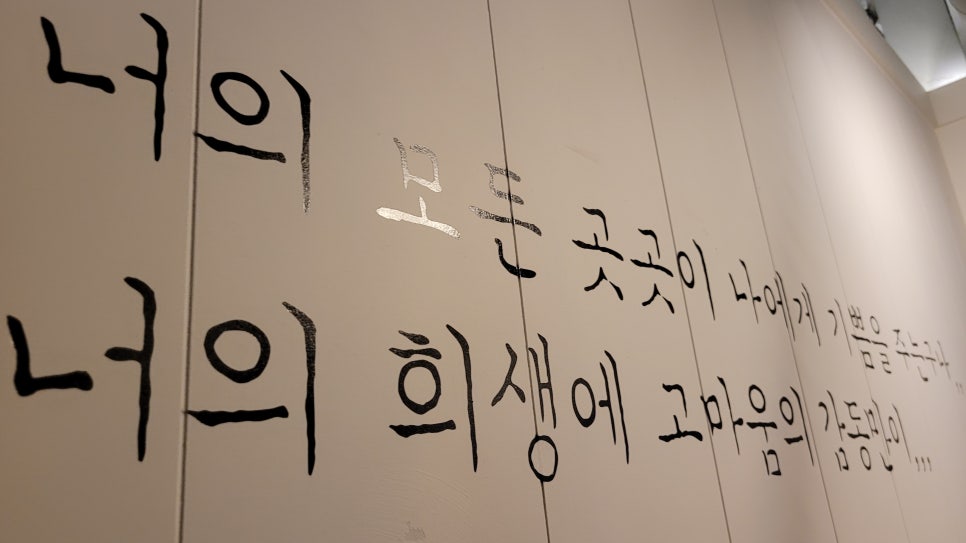 너의 모든 곳곳이 나에게 기쁨을 주는구나..
너의 희생에 고마움의 감동만이,,,